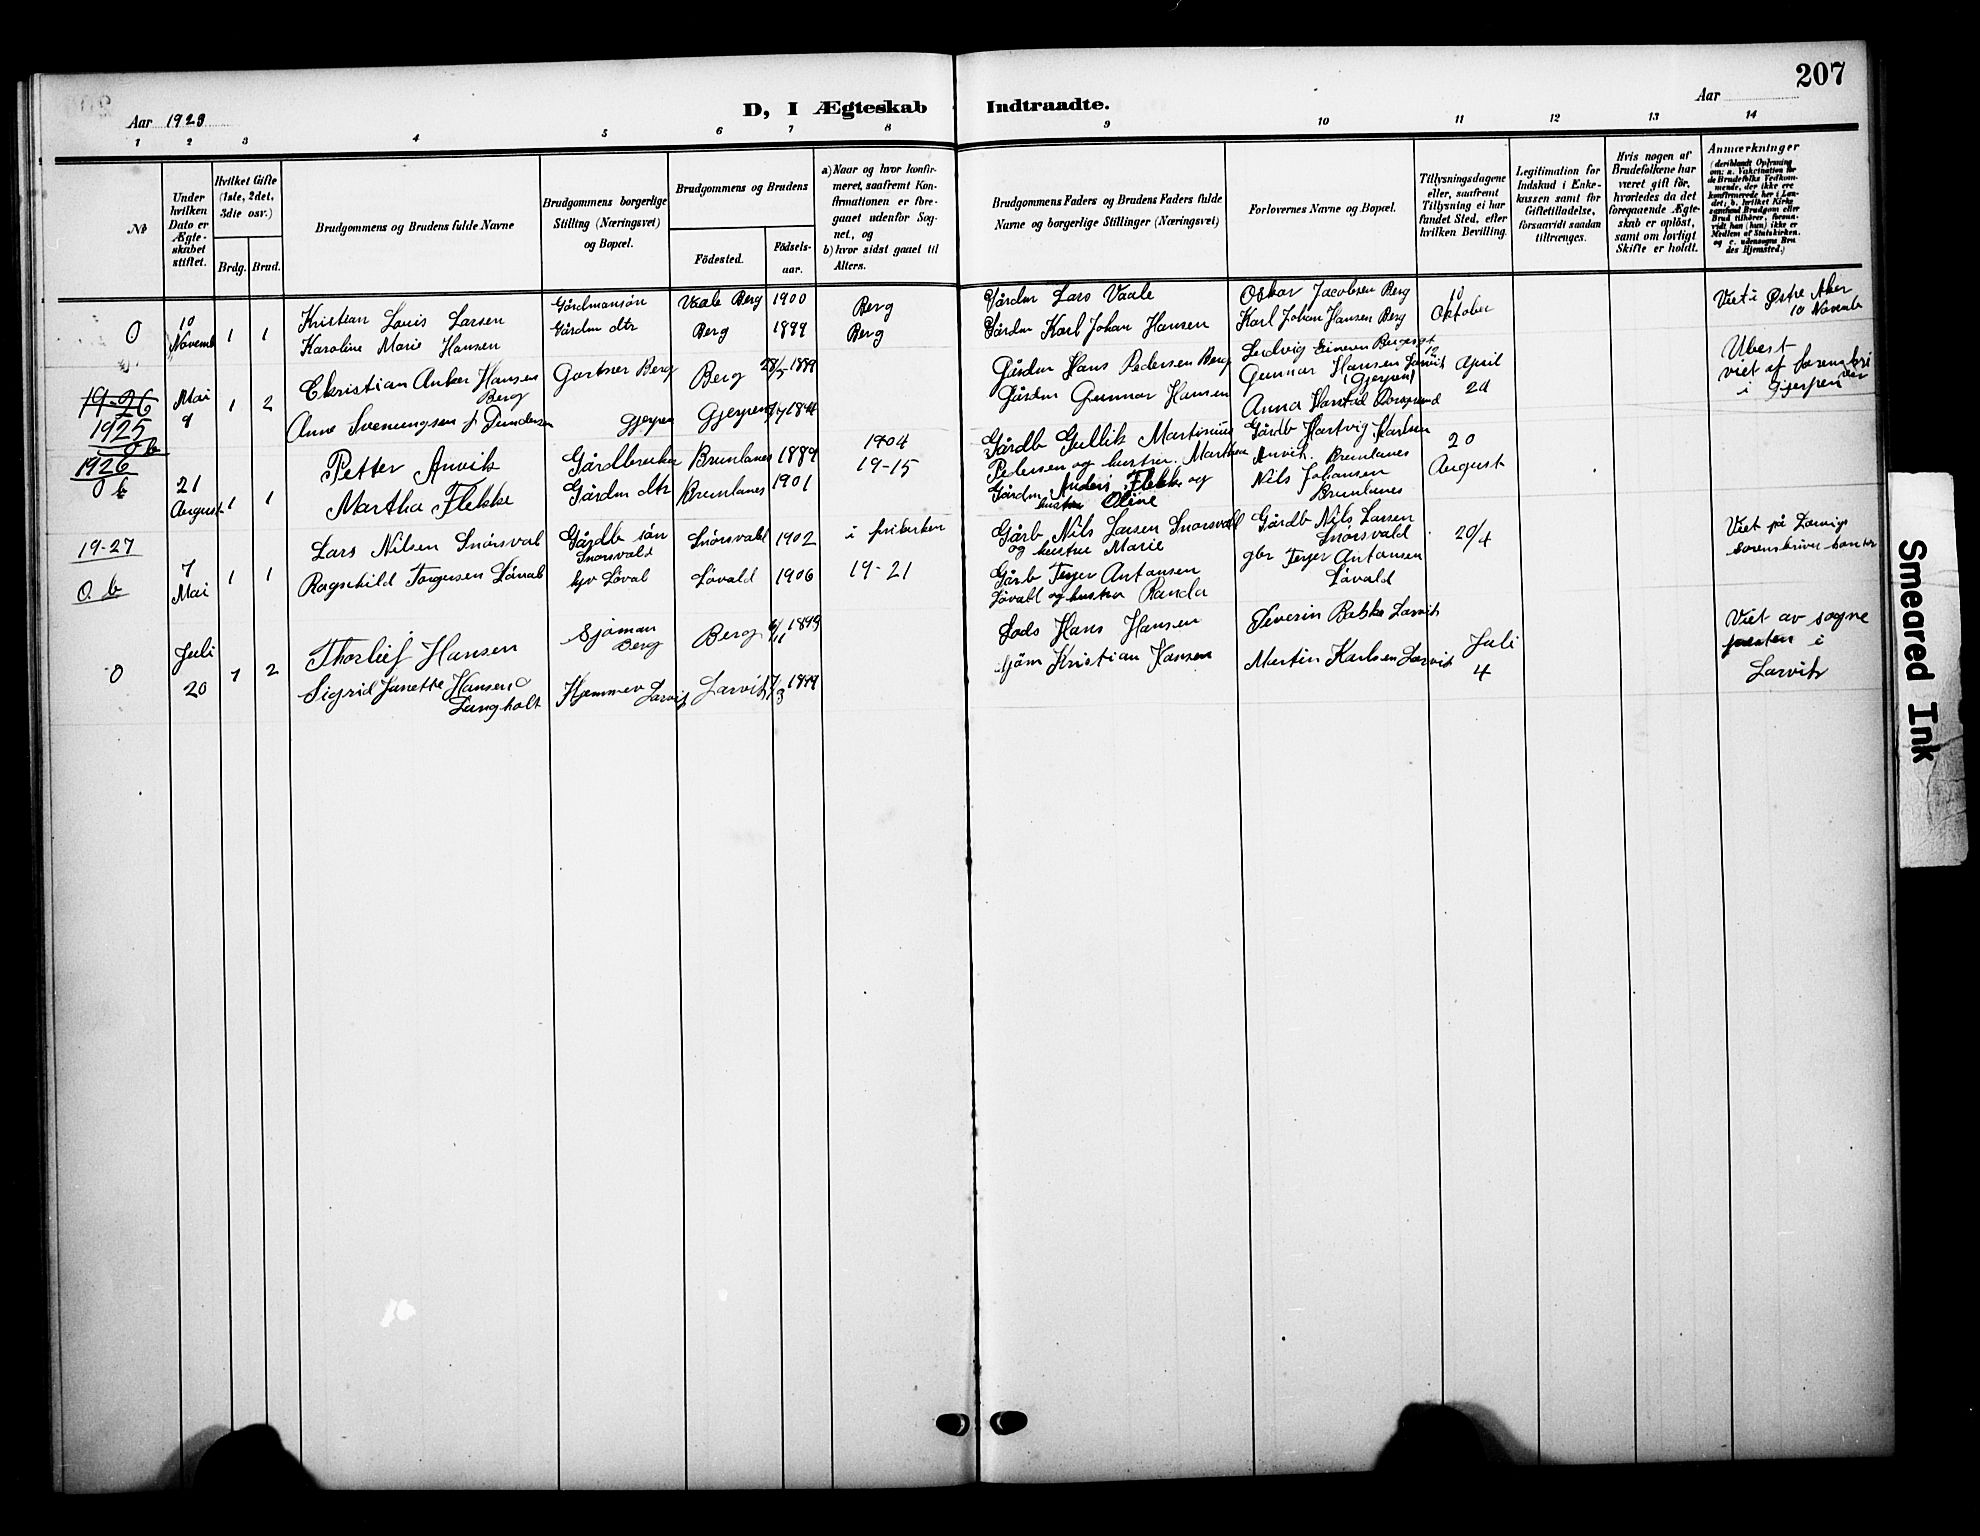 207
Aar 1923
D, I Ægteskab Indtraadte.
Aar
1 2 3 4 5 6 7 8 9 10 11 12 13 14
№
Under hvilken Dato er Ægteskabet stiftet.
Hvilket Gifte (1ste, 2det, 3die osv.)
Brdg. Brud.
Brudgommens og Brudens fulde Navne
Brudgommens borgerlige Stilling (Næringsvei) og Bopæl.
Brudgommens og Brudens
Fødested.
Fødselsaar.
a) Naar og hvor konfirmeret, saafremt Konfirmationen er foregaaet udenfor Sognet, og
b) hvor sidst gaaet til Alters.
Brudgommens Faders og Brudens Faders fulde Navne og borgerlige Stillinger (Næringsvei)
Forlovernes Navne og Bopæl.
Tillysningsdagene eller, saafremt Tillysning ei har fundet Sted, efter hvilken Bevilling.
Legitimation for Indskud i Enkekassen samt for Giftetilladelse, forsaavidt saadan tiltrænges.
Hvis nogen af Brudefolkene har været gift før, hvorledes da det foregaaende Ægteskab er opløst, samt om lovligt Skifte er holdt.
Anmærkninger
(deriblandt Oplysning om: a. Vaccination for de Brudefolks Vedkommende, der ikke ere konfirmerede her i Landet; b. hvilket Kirkesamfund Brudgom eller Brud tilhører, forsaavidt han (hun) ikke er Medlem af Statskirken, og c. udensogns Brudes Hjemsted.)
0 10 Novemb 1 1
Kristian Louis Larsen Gårdmansøn Vaale Berg 1900 Berg Gårdm Lars Vaale Oskar Jacobsen Berg 10 Oktober Viet i Østre Aker 10 Novemb
Karoline Marie Hansen Gårdm dtr Berg 1899 Berg Gårdm Karl Johan Hansen Karl Johan Hansen Berg
19-26
1925
Mai 9 1 2
Christian Anker Hansen Berg Gartner Berg Berg 28/5 1899 Gårdm Hans Pedersen Berg Ludvig April 2d
Anne Svenungsen f Gundersen Gjerpen Gjerpen 1894 Gårdm Gunnar Hansen Gunnar Hansen Larvik (Gjerpen)
Anna Harstad
viet af sorenskri ver i Gjerpen
0 b
1926
0 b 21 August 1 1
Petter Anvik Gårdbruker Brunlanes 1889 1904 Gårdb Gullik Martinius Pedersen og hustru. Marthea Gårdb Hartvig Karlsen Anvik. Brunlanes 20 August
Martha Flekke Gårdm dtr Brunlanes 1901 19-15 Gårdm Anders Flekke og hustru Oline Nils Johansen Brunlanes
19-27
0. b 7 Mai 1 1
Lars Nilsen Snørsval Gårdb søn Snørsvald Snørsvald 1902 i frikirken Gårb Nils Larsen Snørsvald og hustru Marie Gårdb Nils Larsen Snørsvald 20/4 Viet på Larvigs sorenskriver kontor
Ragnhild Torgersen Løvald Løval Løvald 1906 19-21 Gårb Terjer Antonsen Løvald og hustru Randa gbr Terjer Antonsen Løvald
0 Juli 20 1 2
Thorleif Hansen Sjøman Berg Berg 6/11 1899 Lods Hans Hansen Severin Bakke Larvik Juli 4 Viet av sogne presten i Larvik
Sigrid Janette Hansen Langholt Hammer Larvik Larvik 1/3 1899 Sjøm Kristian Hansen Martin Karlsen Larvik
Smeared Ink